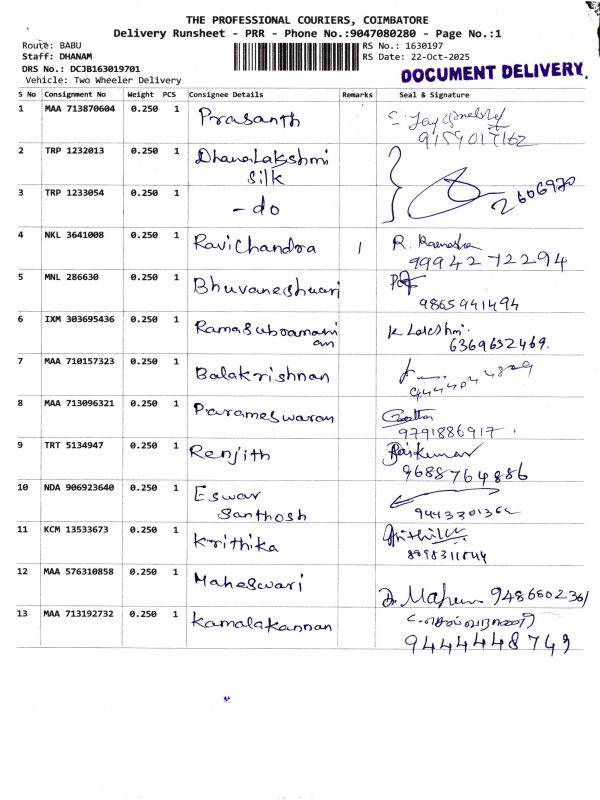 THE PROFESSIONAL COURIERS, COIMBATORE
Delivery Runsheet - PRR - Phone No.:9047080280 - Page No.:1
Route: BABU
RS No.: 1630197
Staff: DHANAM
RS Date: 22-Oct-2025
DRS No.: DCJB163019701
DOCUMENT DELIVERY.
Vehicle: Two Wheeler Delivery
S No Consignment No Weight PCS Consignee Details Remarks Seal & Signature
1 MAA 713870604 0.250 1 Prasanth
9159017162
2 TRP 1232013 0.250 1 DhanaLakshmi
Silk
3 TRP 1233054 0.250 1 - do
2606970
4 NKL 3641008 0.250 1 RaviChandra 1 R.
9994272294
5 MNL 286630 0.250 1 Bhuvaneshwari
9865941494
6 IXM 303695436 0.250 1 Ramasubramani
an
K Lakshmi.
6369632469.
7 MAA 710157323 0.250 1 Balakrishnan
8 MAA 713096321 0.250 1 Parameswaran
9791886917.
9 TRT 5134947 0.250 1 Renjith Rajkumar
9688764886
10 NDA 906923640 0.250 1 Eswar
Santhosh
9443301362
11 KCM 13533673 0.250 1 Krithika
12 MAA 576310858 0.250 1 Maheswari
9486802361
13 MAA 713192732 0.250 1 Kamalakannan
9444448749